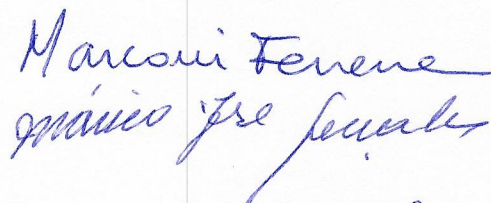 Marconi Ferrera
Márico José Gonçales